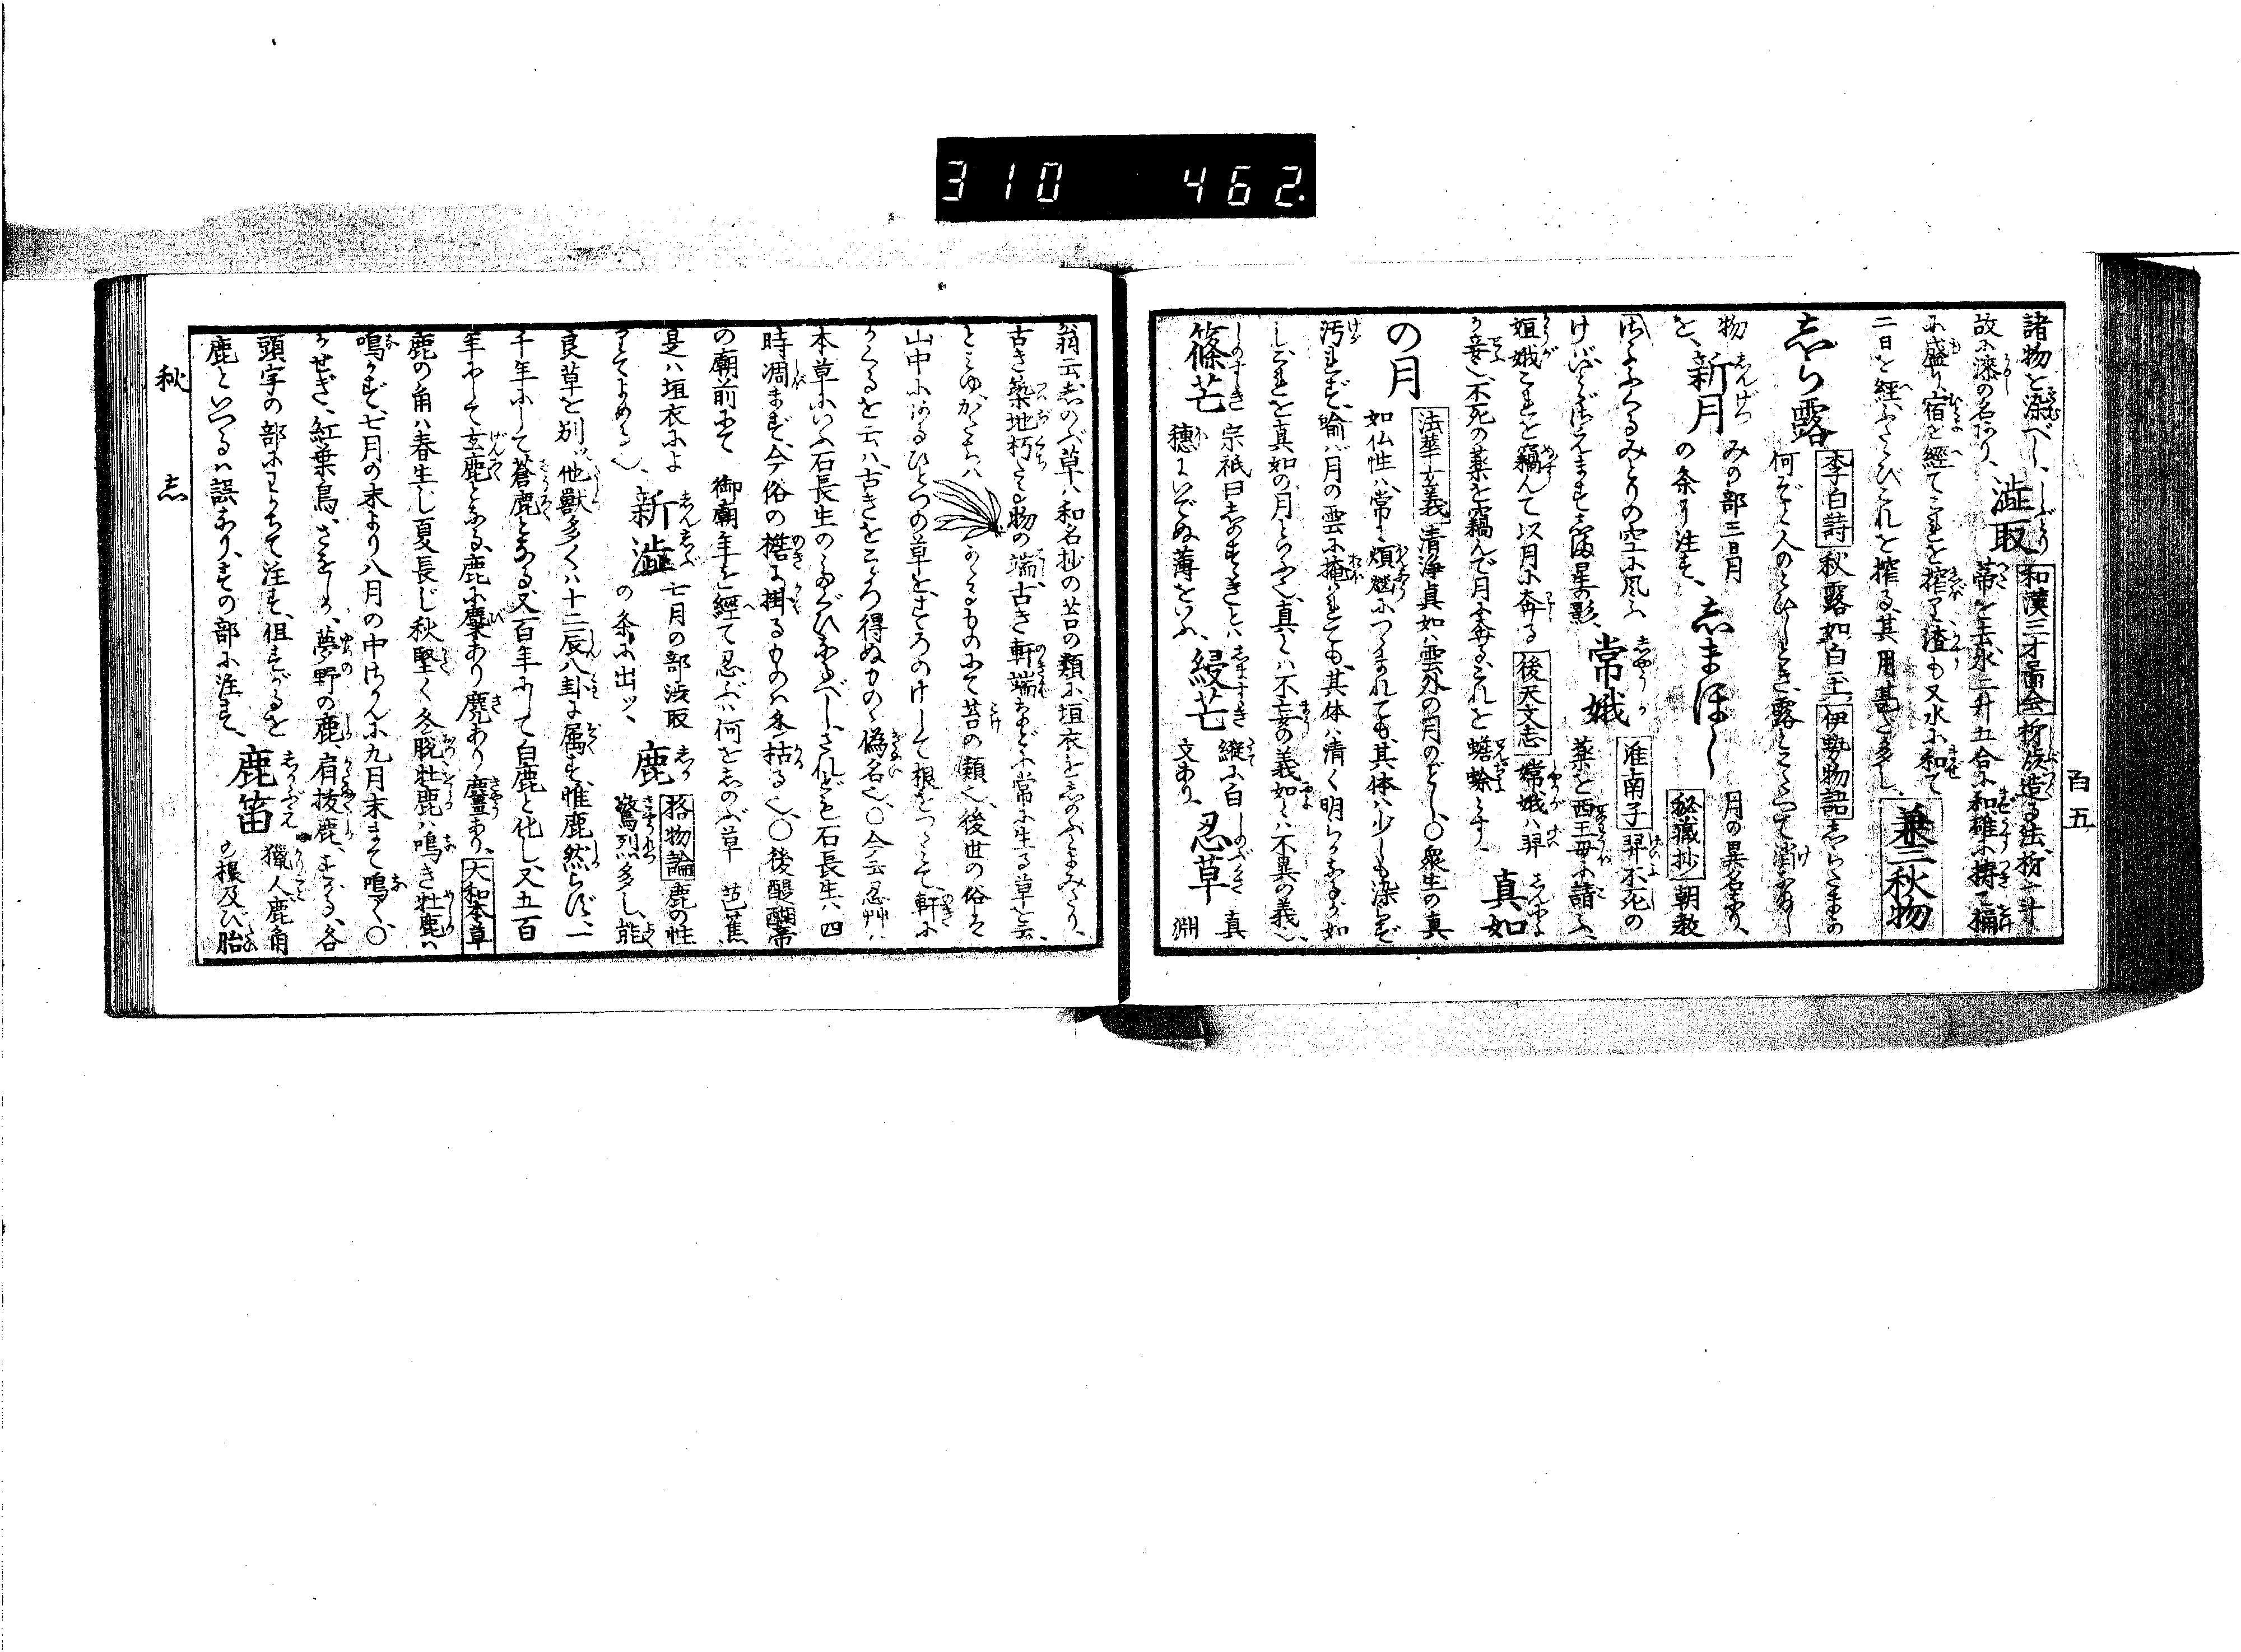 310 462.
百五
諸物を染べし、澁取 和漢三才圖会 柹澁造る法、柹一斗
故に漆の名あり、蒂を去水二升五合に和碓に擣て桶
に盛り、宿を經てこれを搾り渣も又水に和て
二日を經、ふたゝびこれを搾る、其用甚だ多し、 兼三秋物
志ら露 李白詩 秋露如白玉 伊勢物語 志らたまの
何ぞと人のとひしとき露とこたへて消なまし
物 新月 みの部三日月
を、の条に注す、 志まぼし 月の異名なり、
秘藏抄 朝教
みとりの空に風ふ
けば 星の影 常娥 淮南子 羿不死の
薬を西王母に請ふ、
姮娥これを竊んで以月に奔る 後天文志 嫦娥ハ羿
が妾也、不死の薬を竊んで月に奔る、これを蟾蜍とす、 真如
の月 法華玄義 清淨真如ハ雲外の月のごとし、○衆生の真
如仏性ハ、常に煩惱につゝまれても、其体ハ少しも染らず
汚れず、喩バ月の雲に掩れても、其体ハ清く明らかなるが如
し、これを真如の月といふ也、真とハ不妄の義、如とハ不異の義也、
篠芒 宗祇曰志のすゝきとハ
穂にいでぬ薄をいふ、 縵芒 縦に白
文あり、 忍草 真
淵
翁云、志のぶ草ハ和名抄の苔の類に、垣衣を志のぶとよみたり、
古き築地、朽たる物の端、古き軒端などに常に生る草を云、
とミゆ、かたちハ かゝるものにて苔の類也、後世の俗ハ
山中にあるひとつの草をまろめけして根をつゝミて、軒に
かくるを云ハ、古きをこゝろ得ぬものゝ偽名也、○今云忍艸ハ
本草にいふ石長生のたぐひなるべし、されども石長生ハ四
時凋まず、今俗の檐に掛るものハ冬枯る也、○後醍醐帝
の廟前にて 御廟年を經て忍ぶハ何を志のぶ草 芭蕉
是ハ垣衣によ
せてよめる也、 新澁 七月の部澁取
の条に出ッ、 鹿 格物論 鹿の性
驚烈多し、能
良草を別ッ、他獸多くハ十二辰八卦に属す、惟鹿然らず、一
千年にして蒼鹿となる、又百年にして白鹿と化し、又五百
年にして玄鹿となる、鹿に麋あり麂あり麠あり、 大和本草
鹿の角ハ春生し夏長じ秋堅く冬脱、牡鹿ハ鳴き牝鹿ハ
鳴かず、七月の末より八月の中さかんに九月末まで鳴く、○
かせぎ、紅葉鳥、さをしか、夢野の鹿、肩抜鹿、すがる、各
頭字の部にわかちて注す、但すがるを
鹿といへるハ誤なり、すの部に注す、 鹿笛 獵人鹿角
の根及び胎
秋 志